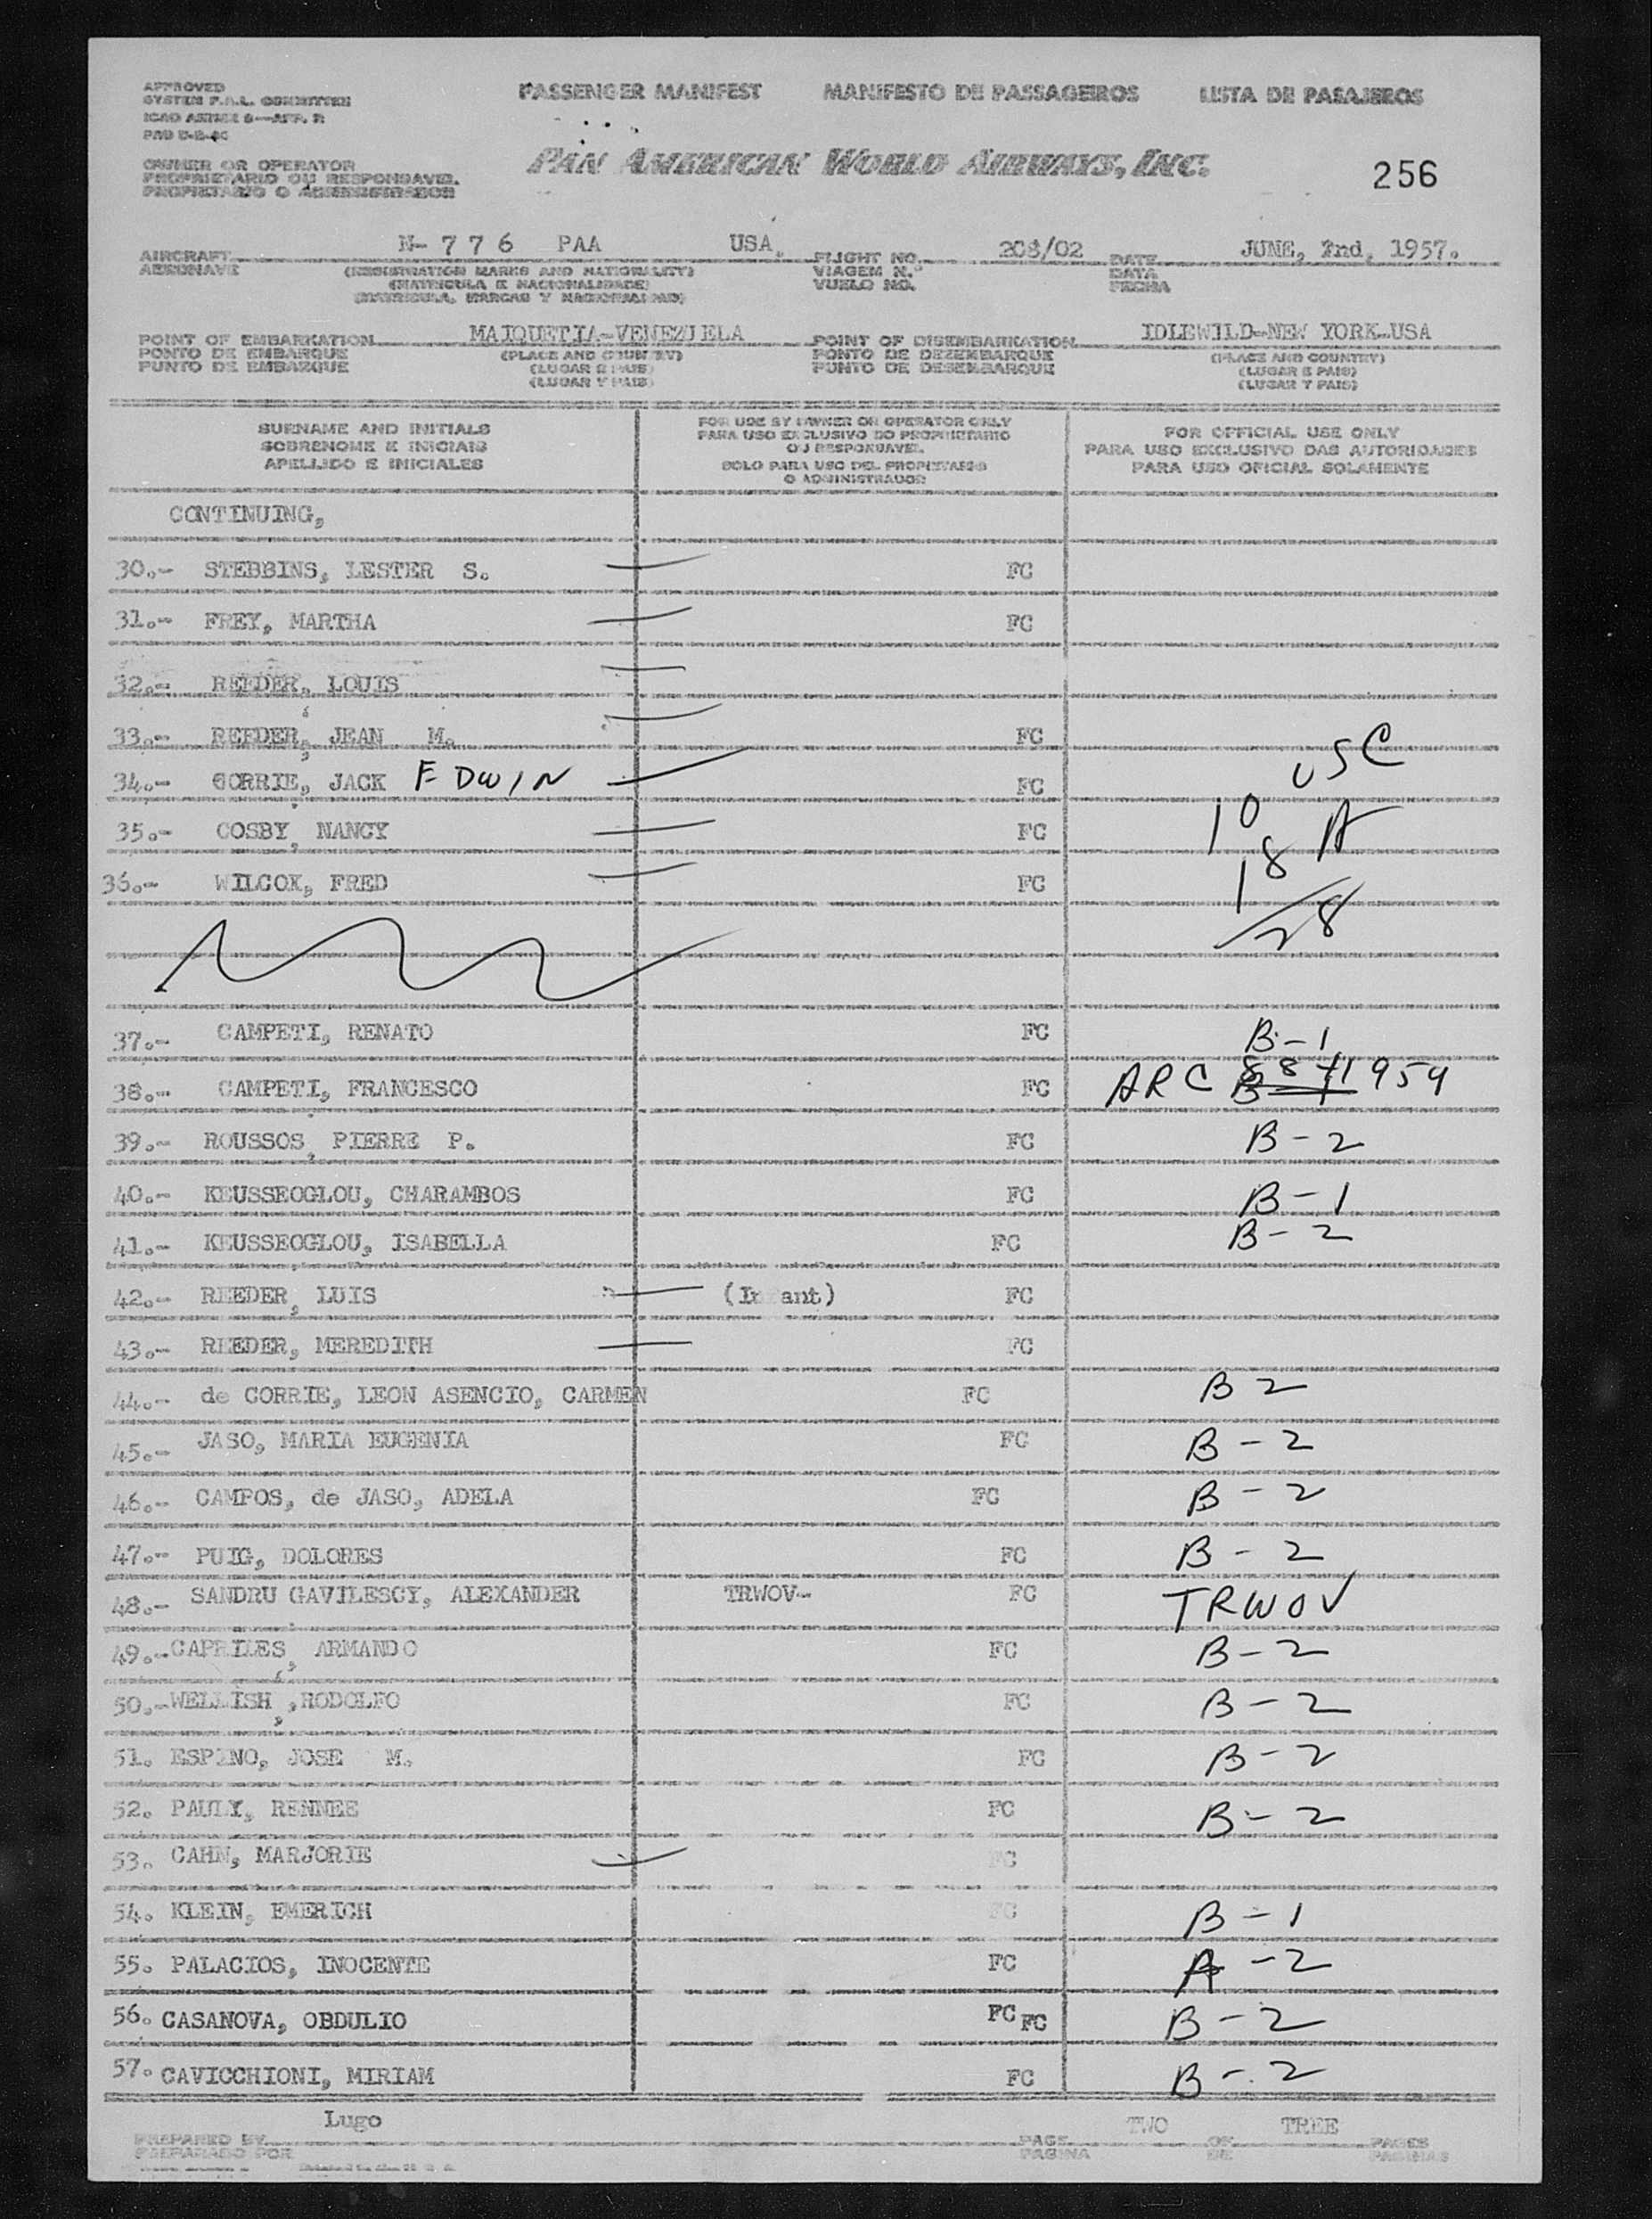 APPROVED
SYSTEM F.A.L. COMMITTEE
ICAO ANNEX 9—APP. 2
PASSENGER MANIFEST MANIFESTO DE PASSAGEIROS LISTA DE PASAJEROS
OWNER OR OPERATOR
PROPRIETARIO OU RESPONSAVEL
PROPIETARIO O ADMINISTRADOR
PAN AMERICAN WORLD AIRWAYS, INC.
256
AIRCRAFT N- 7 7 6 PAA USA FLIGHT NO. 208/02 DATE JUNE, 2nd, 1957.
AERONAVE (REGISTRATION MARKS AND NATIONALITY) VIAGEM N.º DATA
(MATRICULA E NACIONALIDADE) VUELO NO. FECHA
(MATRICULA, MARCAS Y NACIONALIDAD)
POINT OF EMBARKATION MAIQUETIA-VENEZUELA POINT OF DISEMBARKATION IDLEWILD-NEW YORK-USA
PONTO DE EMBARQUE (PLACE AND COUNTRY) PONTO DE DEZEMBARQUE (PLACE AND COUNTRY)
PUNTO DE EMBARQUE (LUGAR E PAIS) PUNTO DE DESEMBARQUE (LUGAR E PAIS)
(LUGAR Y PAIS) (LUGAR Y PAIS)
SURNAME AND INITIALS
SOBRENOME E INICIAIS
APELLIDO E INICIALES
FOR USE BY OWNER OR OPERATOR ONLY
PARA USO EXCLUSIVO DO PROPRIETARIO
OU RESPONSAVEL
SOLO PARA USO DEL PROPIETARIO
O ADMINISTRADOR
FOR OFFICIAL USE ONLY
PARA USO EXCLUSIVO DAS AUTORIDADES
PARA USO OFICIAL SOLAMENTE
CONTINUING,
30.- STEBBINS, LESTER S. FC
31.- FREY, MARTHA FC
32.- REEDER, LOUIS
33.- REEDER, JEAN M. FC
USC
34.- CORRIE, JACK EDWIN FC
10
35.- COSBY, NANCY FC A
18
36.- WILCOX, FRED FC
28
37.- CAMPETI, RENATO FC B-1
38.- CAMPETI, FRANCESCO FC ARC 8871959
39.- ROUSSOS, PIERRE P. FC B-2
40.- KEUSSEOGLOU, CHARAMBOS FC B-1
41.- KEUSSEOGLOU, ISABELLA FC B-2
42.- REEDER, LUIS (Infant) FC
43.- REEDER, MEREDITH FC
44.- de CORRIE, LEON ASENCIO, CARMEN FC B 2
45.- JASO, MARIA EUGENIA FC B-2
46.- CAMPOS, de JASO, ADELA FC B-2
47.- PUIG, DOLORES FC B-2
48.- SANDRU GAVILESCY, ALEXANDER TRWOV- FC TRWOV
49.- CAPRILES, ARMANDO FC B-2
50.- WELLISH, RODOLFO FC B-2
51. ESPINO, JOSE M. FC B-2
52. PAULY, RENNEE FC B-2
53. CAHN, MARJORIE FC
54. KLEIN, EMERICH FC B-1
55. PALACIOS, INOCENTE FC A-2
56. CASANOVA, OBDULIO FC FC B-2
57. CAVICCHIONI, MIRIAM FC B-2
PREPARED BY Lugo PAGE TWO OF TREE PAGES
PREPARADO POR PAGINA DE PAGINAS